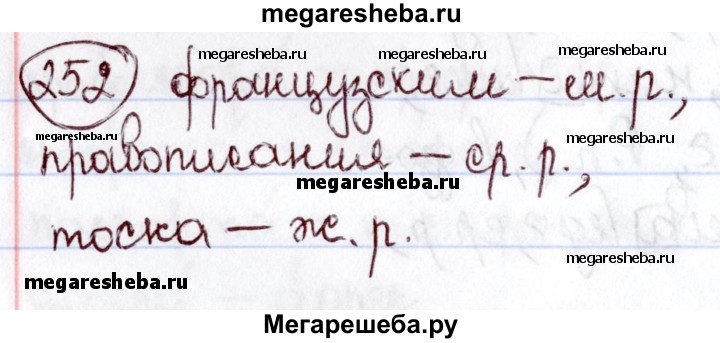 megaresheba.ru
megaresheba.ru megaresheba.ru megaresheba.ru
252 французским – м.р.,
megaresheba.ru megaresheba.ru
правописания – ср.р.,
megaresheba.ru
тоска – ж.р.
megaresheba.ru
megaresheba.ru
Мегарешеба.ру